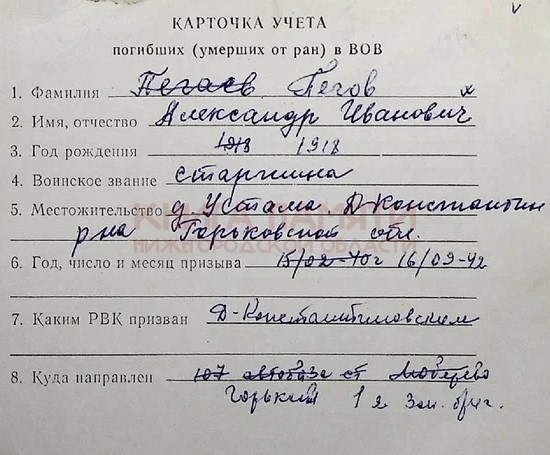 КАРТОЧКА УЧЕТА
погибших (умерших от ран) в ВОВ
1. Фамилия Пегаев Пегов
2. Имя, отчество Александр Иванович
3. Год рождения 1918 1918
4. Воинское звание старшина
5. Местожительство д. Устама Д-Константин
р-на Горьковской обл.
КНИГА ПАМЯТИ
НИЖЕГОРОДСКОЙ ОБЛАСТИ
6. Год, число и месяц призыва 15/02-40г 16/09-42
7. Каким РВК призван Д-Константиновским
8. Куда направлен 107 автобаза ст
Горький 1я Зап. бриг.